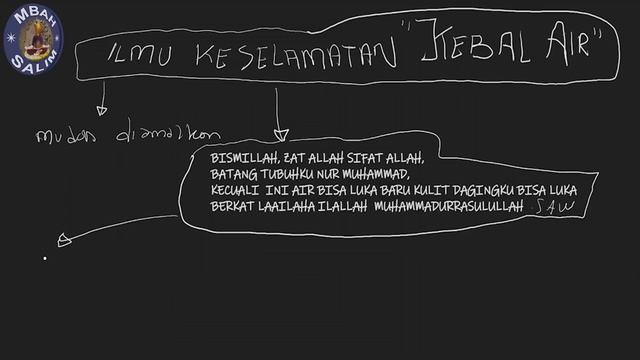 MBAH
SALIM
ILMU KESELAMATAN "KEBAL AIR"
mudah diamalkan
BISMILLAH, ZAT ALLAH SIFAT ALLAH,
BATANG TUBUHKU NUR MUHAMMAD,
KECUALI INI AIR BISA LUKA BARU KULIT DAGINGKU BISA LUKA
BERKAT LAAILAHA ILALLAH MUHAMMADURRASULULLAH .SAW